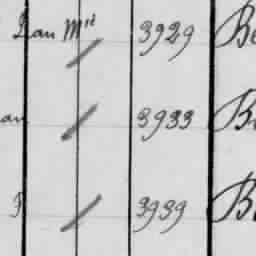 Jan Mⁱⁱ 3929 Be
an 3933 B
3939 B